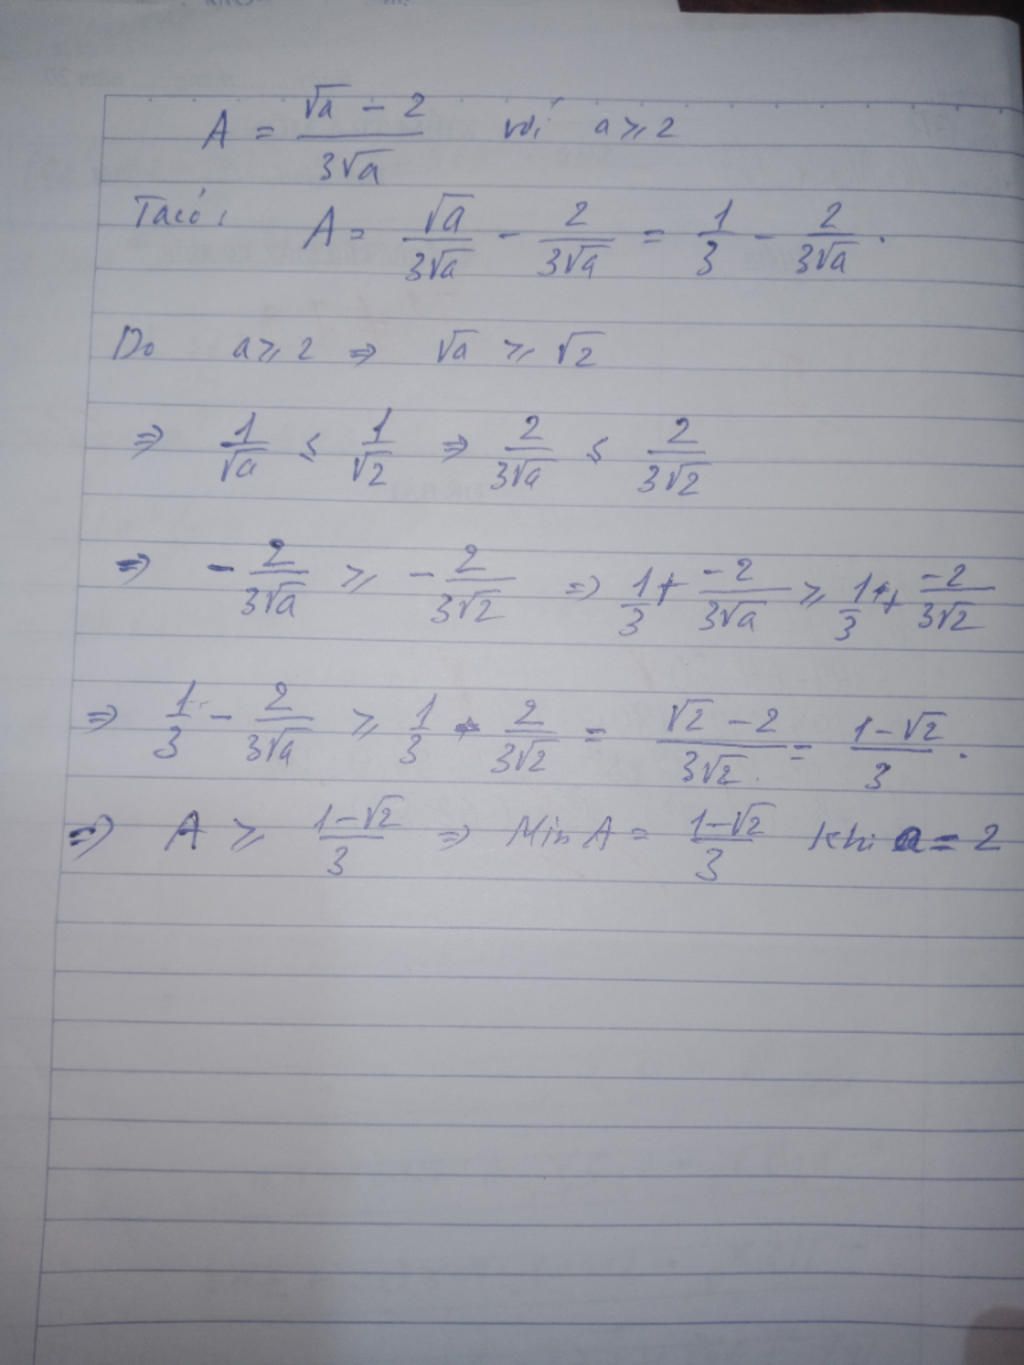 A = (√a - 2)/(3√a) với a ≥ 2
Ta có: A = √a/(3√a) - 2/(3√a) = 1/3 - 2/(3√a).
Do a ≥ 2 ⇒ √a ≥ √2
⇒ 1/√a ≤ 1/√2 ⇒ 2/(3√a) ≤ 2/(3√2)
⇒ -2/(3√a) ≥ -2/(3√2) ⇒ 1/3 + (-2)/(3√a) ≥ 1/3 + (-2)/(3√2)
⇒ 1/3 - 2/(3√a) ≥ 1/3 - 2/(3√2) = (√2 - 2)/(3√2) = (1-√2)/3.
⇒ A ≥ (1-√2)/3 ⇒ Min A = (1-√2)/3 khi a = 2